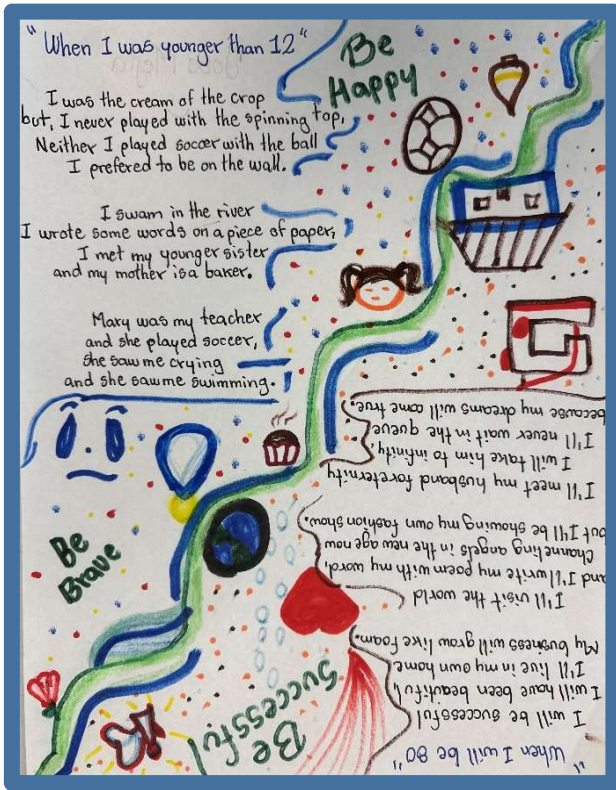 "When I was younger than 12"
Be
Happy
I was the cream of the crop
but, I never played with the spinning top,
Neither I played soccer with the ball
I prefered to be on the wall.
I swam in the river
I wrote some words on a piece of paper,
I met my younger sister
and my mother is a baker.
Mary was my teacher
and she played soccer,
she saw me crying
and she saw me swimming.
Be
Brave
"When I will be 80"
Be
Successful
I will be successful
I will have been beautiful
I'll live in my own home
My busness will grow like foam.
I'll visit the world
and I'll write my poem with my word,
Channeling angels in the new age now
but I'll be showing my own fashion show.
I'll meet my husband foreternity
I will take him to infinity
I'll never wait in the queue
because my dreams will come true.